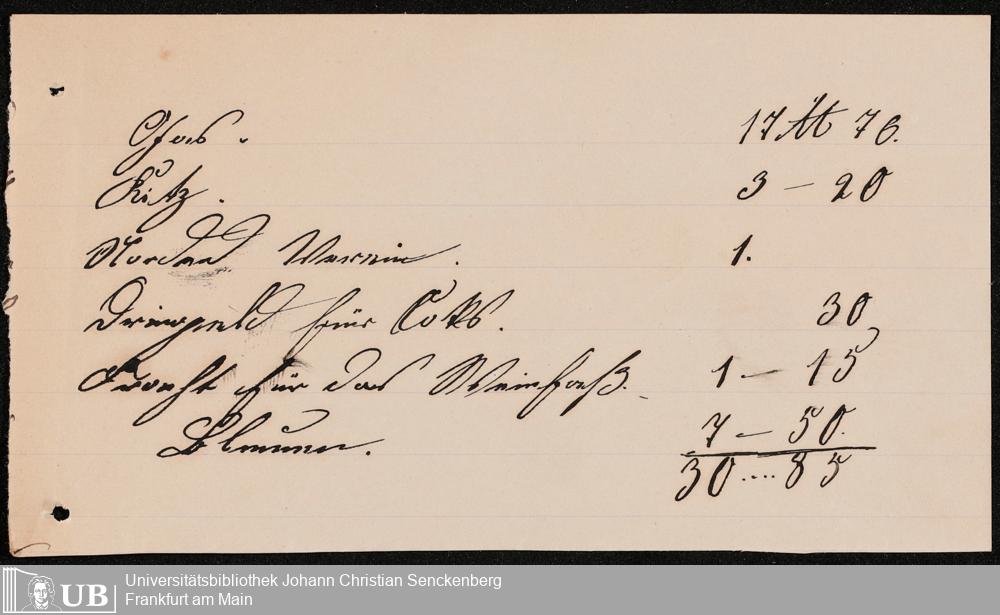 Gas. 17 M 76.
Kitz. 3 – 20
Verein. 1.
Drinngeld für Coks. 30
Fracht für das Weinfaß. 1 – 15
Blumen. 7 – 50.
30 .... 85
UB Universitätsbibliothek Johann Christian Senckenberg
Frankfurt am Main